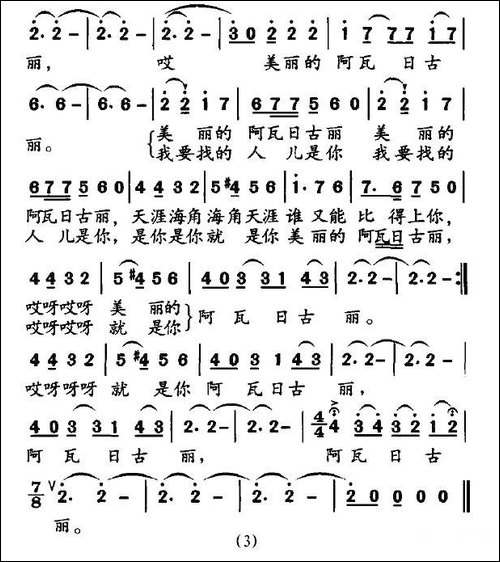 2· 2 - | 2· 2 - | 2· 2 - | 3 0 2 2 2 | 1 7 7 7 1 7 |
丽， 哎 美丽的 阿瓦 日古
6· 6 - | 6· 6 - | 2 2 1 7 | 6 7 7 5 6 0 | 2 2 1 7 |
丽。 美 丽的 阿瓦日古丽 美 丽的
我要找的 人 儿是你 我要找的
6 7 7 5 6 0 | 4 4 3 2 | 5 #4 5 6 | i· 7 6 | 7· 6 7 5 0 |
阿瓦日古丽，天涯海角海角天涯谁又能比 得上你，
人 儿是你，是你是你就 是你美丽的阿瓦日古丽，
4 4 3 2 | 5 #4 5 6 | 4 0 3 3 1 4 3 | 2· 2 - | 2· 2 - :||
哎呀哎呀 美 丽的 阿 瓦 日古 丽。
哎呀哎呀 就 是你
4 4 3 2 | 5 #4 5 6 | 4 0 3 1 4 3 | 2· 2 - | 2· 2 - |
哎呀呀呀 就 是你 阿 瓦日古 丽，
4 0 3 3 1 4 3 | 2· 2 - | 2· 2 - | 4/4 4 3 4 3 2 1 2 |
阿 瓦 日古 丽， 阿 瓦 日 古
7/8 V 2· 2 - | 2· 2 - | 2· 2 - | 2 0 0 0 0 ||
丽。
(3)